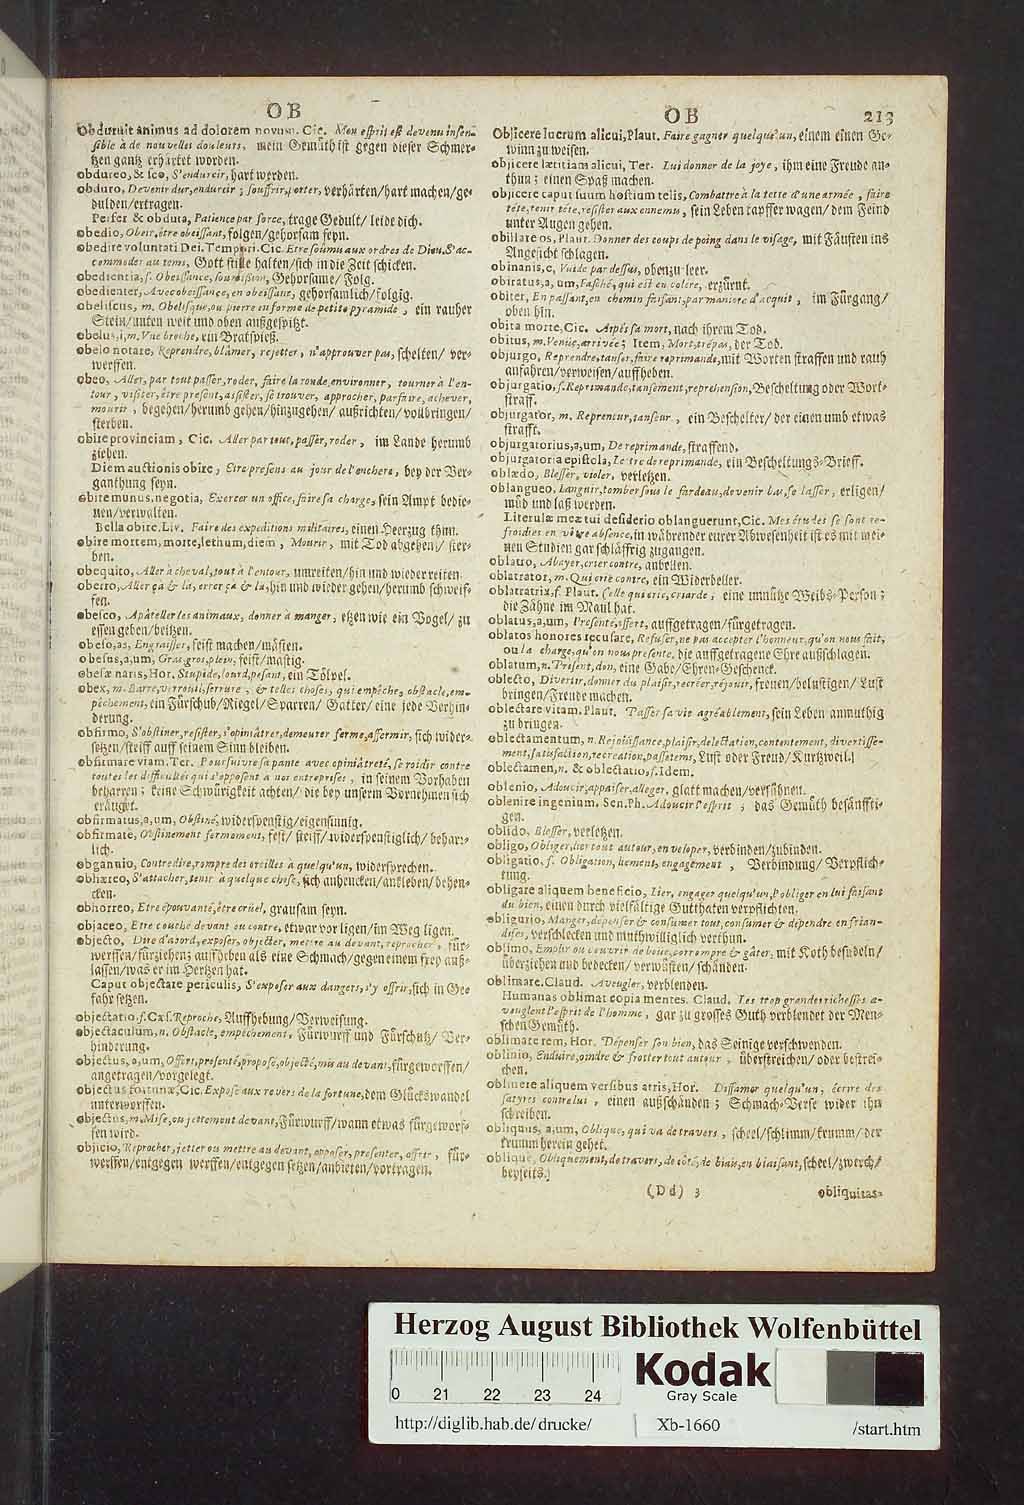 OB
Obduruit animus ad dolorem novum. Cic. Mon esprit est devenu insen-
sible à de nouvelles douleurs, mein Gemüth ist gegen dieser Schmer-
tzen gantz erhärtet worden.
obdureo, & sco, S'endurcir, hart werden.
obduro, Devenir dur, endurcir; souffrir, porter, verhärten/hart machen/ge-
dulden/ertragen.
Perfer & obdura, Patience par force, trage Gedult/ leide dich.
obedio, Obeir, être obeissant, folgen/gehorsam seyn.
obedire voluntati Dei. Tempori. Cic. Etre soûmis aux ordres de Dieu, S'ac-
commoder au tems, Gott stille halten/sich in die Zeit schicken.
obedientia, f. Obeissance, soûmission, Gehorsame/ Folg.
obedienter, Avec obeissance, en obeissant, gehorsamlich/folgig.
obeliscus, m. Obelisque, ou pierre en forme de petite pyramide, ein rauher
Stein/unten weit und oben außgespitzt.
obelus, i, m. Vne broche, ein Bratspieß.
obelo notare, Reprendre, blâmer, rejetter, n'approuver pas, schelten/ ver-
werffen.
obeo, Aller, par tout passer, roder, faire la ronde, environner, tourner à l'en-
tour, visiter, être present, assister, se trouver, approcher, parfaire, achever,
mourir, begehen/herumb gehen/hinzugehen/ außrichten/vollbringen/
sterben.
obire provinciam, Cic. Aller par tout, passer, roder, im Lande herumb
ziehen.
Diem auctionis obire, Etre presens au jour de l'enchere, bey der Ver-
ganthung seyn.
obire munus, negotia, Exercer un office, faire sa charge, sein Ampt bedie-
nen/verwalten.
Bella obire. Liv. Faire des expeditions militaires, einen Heerzug thun.
obire mortem, morte, lethum, diem, Mourir, mit Tod abgehen/ ster-
ben.
obequito, Aller à cheval, tout à l'entour, umreiten/hin und wieder reiten.
oberro, Aller çà & là, errer çà & là, hin und wieder gehen/herumb schweif-
fen.
obesco, Apâteller les animaux, donner à manger, etzen wie ein Vogel/ zu
essen geben/beitzen.
obeso, as, Engraisser, feist machen/mästen.
obesus, a, um, Gras, gros, plein, feist/mastig.
obesæ naris, Hor. Stupide, lourd, pesant, ein Tölpel.
obex, m. Barre, verrouil, serrure, & telles choses, qui empêche, obstacle, em-
pêchement, ein Fürschub/Riegel/Sparren/ Gatter/ eine jede Verhin-
derung.
obfirmo, S'obstiner, resister, s'opiniâtrer, demeurer ferme, affermir, sich wider-
setzen/steiff auff seinem Sinn bleiben.
obfirmare viam, Ter. Poursuivre sa pante avec opiniâtreté, se roidir contre
toutes les difficultés qui s'opposent à nos entreprises, in seinem Vorhaben
beharren; keine Schwürigkeit achten/ die bey unserm Vornehmen sich
eräuget.
obfirmatus, a, um, Obstiné, widerspenstig/eigensinnig.
obfirmatè, Obstinement fermement, fest/ steiff/widerspenstiglich/ behar-
lich.
obgannio, Contredire, rompre des oreilles à quelqu'un, widersprechen.
obhæreo, S'attacher, tenir à quelque chose, sich anhencken/ankleben/behen-
cken.
obhorreo, Etre épouvanté, être crüel, grausam seyn.
objaceo, Etre couché devant ou contre, etwar vor ligen/im Weg ligen.
objecto, Dire d'abord, exposer, objecter, mettre au devant, reprocher, für-
werffen/fürziehen; auffheben als eine Schmach/gegen einem frey auß-
lassen/was er im Hertzen hat.
Caput objectare periculis, S'exposer aux dangers, s'y offrir, sich in Ge-
fahr setzen.
objectatio, f. Cæs. Reproche, Auffhebung/Verweisung.
objectaculum, n. Obstacle, empêchement, Fürwurff und Fürschutz/ Ver-
hinderung.
objectus, a, um, Offert, presenté, proposé, objecté, mis au devant, fürgeworffen/
angetragen/vorgelegt.
objectus fortunæ, Cic. Exposé aux revers de la fortune, dem Glückswandel
unterworffen.
objectus, m. Mise, ou jettement devant, Fürwurff/wann etwas fürgeworf-
fen wird.
objicio, Reprocher, jetter ou mettre au devant, opposer, presenter, offrir, für-
werffen/entgegen werffen/entgegen setzen/anbieten/vortragen.
OB 213
Objicere lucrum alicui, Plaut. Faire gagner quelqu'un, einem einen Ge-
winn zu weisen.
objicere lætitiam alicui, Ter. Lui donner de la joye, ihm eine Freude an-
thun; einen Spaß machen.
objicere caput suum hostium telis, Combattre à la tette d'une armée, faire
tête, tenir tête, resister aux ennemis, sein Leben tapffer wagen/dem Feind
unter Augen gehen.
obillare os, Plaut. Donner des coups de poing dans le visage, mit Fäusten ins
Angesicht schlagen.
obinanis, e, Vuide par dessus, obenzu leer.
obiratus, a, um, Fasché, qui est en colere, erzürnt.
obiter, En passant, en chemin faisant, par maniere d'acquit, im Fürgang/
oben hin.
obita morte, Cic. Aprés sa mort, nach ihrem Tod.
obitus, m. Venüe, arrivée; Item, Mort, trépas, der Tod.
objurgo, Reprendre, tanser, faire reprimande, mit Worten straffen und rauh
anfahren/verweisen/auffheben.
objurgatio, f. Reprimande, tansement, reprehension, Bescheltung oder Wort-
straff.
objurgator, m. Repreneur, tanseur, ein Bescheiter/ der einen umb etwas
strafft.
objurgatorius, a, um, De reprimande, straffend.
objurgatoria epistola, Lettre de reprimande, ein Bescheltungs-Brieff.
oblædo, Blesser, violer, verletzen.
oblangueo, Languir, tomber sous le fardeau, devenir las, se lasser, erligen/
müd und laß werden.
Literulæ meæ tui desiderio oblanguerunt, Cic. Mes études se sont re-
froidies en vôtre absence, in währender eurer Abwesenheit ist es mit mei-
nen Studien gar schläffrig zugangen.
oblatro, Abayer, crier contre, anbellen.
oblatrator, m. Qui crie contre, ein Widerbeller.
oblatratrix, f. Plaut. Celle qui crie, criarde, eine unnütze Weibs-Person;
die Zähne im Maul hat.
oblatus, a, um, Presenté, offert, auffgetragen/fürgetragen.
oblatos honores recusare, Refuser, ne pas accepter l'honneur, qu'on nous fait,
ou la charge, qu'on nous presente, die auffgetragene Ehre außschlagen.
oblatum, n. Present, don, eine Gabe/Ehren-Geschenck.
oblecto, Divertir, donner du plaisir, recréer, réjouir, freuen/belustigen/ Lust
bringen/Freude machen.
oblectare vitam. Plaut. Passer sa vie agréablement, sein Leben anmuthig
zu bringen.
oblectamentum, n. Réjoüissance, plaisir, delectation, contentement, divertisse-
ment, satisfaction, recreation, passetems, Lust oder Freud/Kurtzweil.
oblectamen, n. & oblectatio, f. Idem.
oblenio, Adoucir, appaiser, alleger, glatt machen/versühnen.
oblenire ingenium, Sen. Ph. Adoucir l'esprit; das Gemüth besänffti-
gen.
oblido, Blesser, verletzen.
obligo, Obliger, lier tout autour, enveloper, verbinden/zubinden.
obligatio, f. Obligation, liement, engagement, Verbindung/ Verpflich-
tung.
obligare aliquem beneficio, Lier, engager quelqu'un, l'obliger en lui faisant
du bien, einen durch vielfältige Gutthaten verpflichten.
obligurio, Manger, dépenser & consumer tout, consumer & dépendre en frian-
dises, verschlecken und muthwilliglich verthun.
oblimo, Emplir ou couvrir de boue, corrompre & gâter, mit Koth besudeln/
überziehen und bedecken/verwüsten/schänden.
oblimare. Claud. Aveugler, verblenden.
Humanas oblimat copia mentes. Claud. Les trop grandes richesses a-
veuglent l'esprit de l'homme, gar zu grosses Guth verblendet der Men-
schen Gemüth.
oblimate rem, Hor. Dépenser son bien, das Seinige verschwenden.
oblinio, Enduire, oindre & frotter tout autour, überstreichen/ oder bestrei-
chen.
oblinere aliquem versibus atris, Hor. Diffamer quelqu'un, écrire des
satyres contre lui, einen außschänden; Schmach-Verse wider ihn
schreiben.
obliquus, a, um, Oblique, qui va de travers, scheel/schlimm/krumm/ der
krumm herein gehet.
oblique, Obliquement, de travers, de côté, de biais, en biaisant, scheel/zwerch/
beyseits.
(Dd) 3 obliquitas-
Herzog August Bibliothek Wolfenbüttel
0 21 22 23 24
Kodak
Gray Scale
http://diglib.hab.de/drucke/ Xb-1660 /start.htm